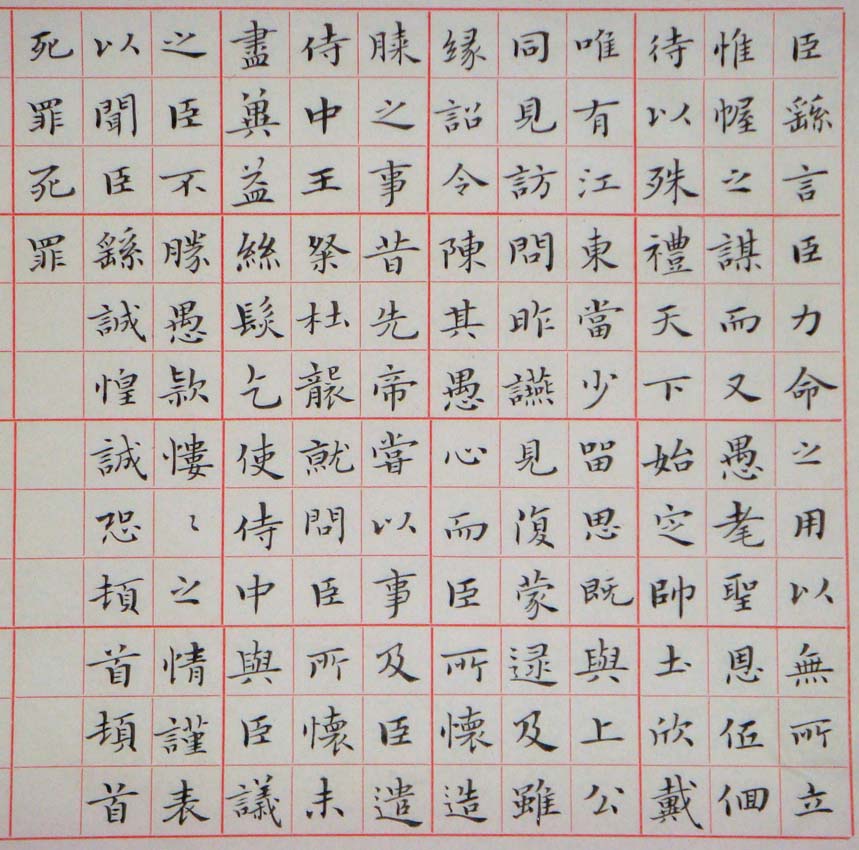 臣繇言臣力命之用以無所立
惟幄之謀而又愚耄聖恩伍佪
待以殊禮天下始定帥土欣戴
唯有江東當少留思既與上公
同見訪問昨讌見復蒙逮及雖
緣詔令陳其愚心而臣所懷造
膝之事昔先帝嘗以事及臣遣
侍中王粲杜襲就問臣所懷未
盡冀益絲髮乞使侍中與臣議
之臣不勝愚款慺〻之情謹表
以聞臣繇誠惶誠恐頓首頓首
死罪死罪